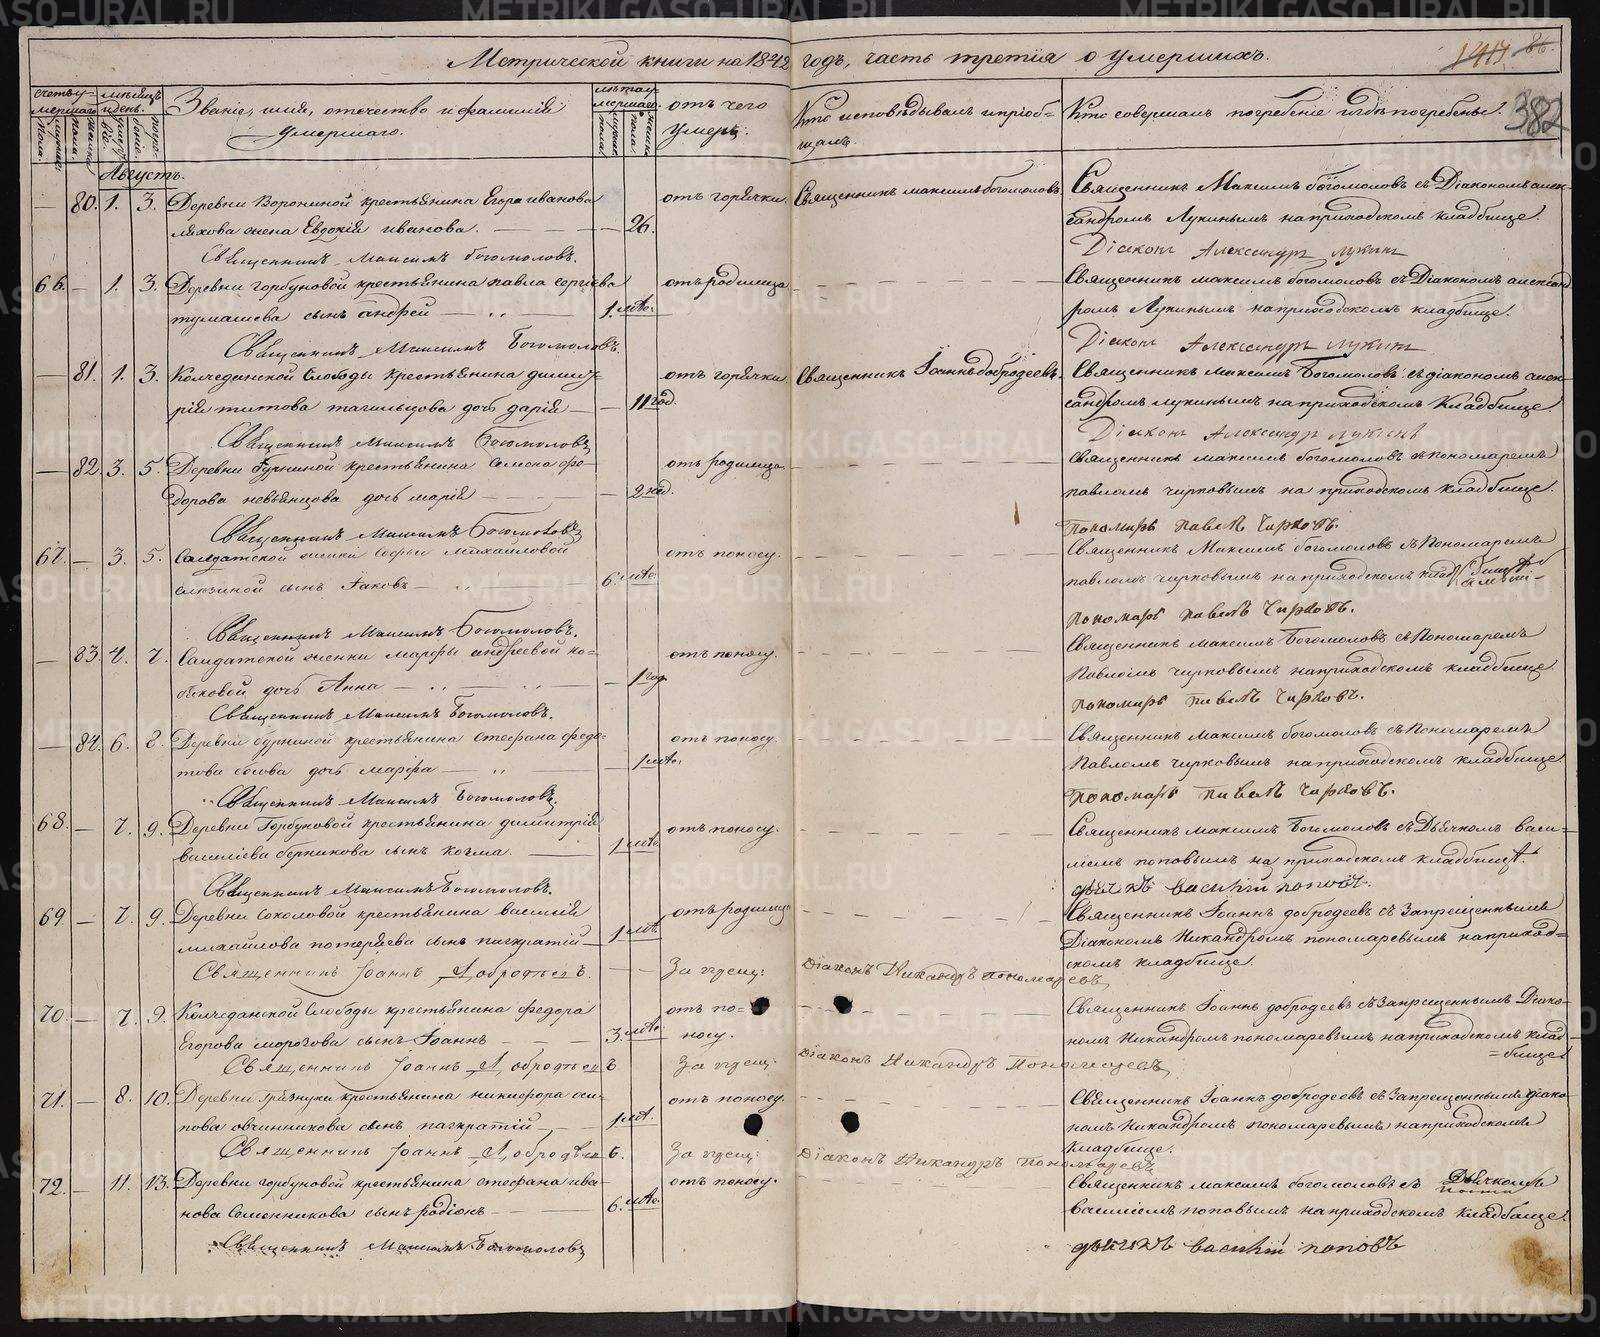 Метрической книги на 1842 годъ, часть третія о умершихъ.
382
Званіе, имя, отечество и фамилія умершаго.
отъ чего умеръ.
Кто исповѣдывалъ и пріобщалъ.
Кто совершалъ погребеніе и гдѣ погребены.
Августъ.
80. 1. 3. Деревни Ворониной крестьянина Егора иванова 26. отъ горячки. Священникъ максимъ богомоловъ Священникъ Максимъ богомоловъ съ Діакономъ алек-
ляхова жена Евдокія иванова. сандромъ Лукинымъ на приходскомъ кладбище.
Священникъ Максимъ богомоловъ. Діаконъ Александръ Лукинъ
66. 1. 3. Деревни горбуновой крестьянина павла сергіева отъ родимца Священникъ максимъ богомоловъ съ Діакономъ александ
тумашева сынъ андрей 1. мѣс. ромъ Лукинымъ на приходскомъ кладбище.
Священникъ Максимъ Богомоловъ. Діаконъ Александръ Лукинъ
81. 1. 3. Колчеданской Слободы крестьянина димит- отъ горячки. Священникъ Іоаннъ добродеевъ. Священникъ максимъ Богомоловъ съ діакономъ алек-
рія титова тагильцова дочь дарія 11 год. сандромъ лукинымъ на приходскомъ Кладбище.
Священникъ Максимъ Богомоловъ Діаконъ Александръ Лукинъ
82. 3. 5. Деревни Бурниной крестьянина Семена фе- отъ родимца Священникъ максимъ богомоловъ съ пономаремъ
дорова невьянцова дочь марія 2 нед. павломъ чирковымъ на приходскомъ кладбище.
Священникъ Максимъ Богомоловъ Пономарь Павелъ Чирковъ.
67. 3. 5. Салдатской женки Софьи михайловой отъ поносу. Священникъ Максимъ богомоловъ съ Пономаремъ
сынъ Іаковъ 6. мѣс. павломъ чирковымъ на приходскомъ
Священникъ Максимъ Богомоловъ. Пономарь Павелъ Чирковъ.
83. 4. 7. Салдатской женки марфы андреевой ко- отъ поносу. Священникъ максимъ Богомоловъ съ Пономаремъ
дочь Анна 1 год Павломъ чирковымъ на приходскомъ кладбище
Священникъ Максимъ Богомоловъ. Пономарь Павелъ Чирковъ.
84. 6. 8. Деревни бурниной крестьянина стефана федо- отъ поносу. Священникъ максимъ богомоловъ съ Пономаремъ
това дочь марфа 1 мѣс. Павломъ чирковымъ на приходскомъ кладбище
Священникъ Максимъ Богомоловъ. Пономарь Павелъ Чирковъ.
68. 7. 9. Деревни Горбуновой крестьянина димитрія отъ поносу. Священникъ максимъ Богомоловъ съ Дьячкомъ васи-
василіева берникова сынъ козма. 1 мѣс. ліемъ поповымъ на приходскомъ кладбищѣ.
Священникъ Максимъ Богомоловъ. дьячекъ василій поповъ.
69. 7. 9. Деревни Соколовой крестьянина василія отъ родимца Священникъ Іоаннъ добродеевъ съ Запрещеннымъ
михайлова потеряева сынъ панкратій 1 мѣс. Діакономъ Никандромъ пономаревымъ на приход-
Священникъ Іоаннъ Добродѣевъ. Діаконъ Никандръ Пономаревъ скомъ кладбище.
70. 7. 9. Колчеданской Слободы крестьянина федора отъ по- Священникъ Іоаннъ добродеевъ съ Запрещеннымъ Діако-
Егорова морозова сынъ Іоаннъ 3. мѣс. носу. номъ Никандромъ пономаревымъ на приходскомъ клад-
бище
Священникъ Іоаннъ Добродѣевъ Діаконъ Никандръ Пономаревъ
71. 8. 10. Деревни грязнухи крестьянина никифора оси- отъ поносу Священникъ Іоаннъ добродеевъ съ Запрещеннымъ діако-
пова овчинникова сынъ панкратій 1 мѣс. номъ Никандромъ пономаревымъ на приходскомъ
Кладбище.
Священникъ Іоаннъ Добродѣевъ. Діаконъ Никандръ Пономаревъ
72. 11. 13. Деревни горбуновой крестьянина стефана ива- отъ поносу. Священникъ максимъ богомоловъ съ Дьячкомъ
нова Семенникова сынъ родіонъ 6. мѣс. василіемъ поповымъ на приходскомъ кладбище.
Священникъ Максимъ Богомоловъ дьячекъ василій поповъ
METRIKI.GASO-URAL.RU